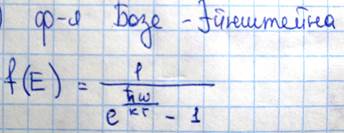 ) ф-я Бозе - Эйнштейна
f(E) = 1 / (e^(ħω/кт) - 1)